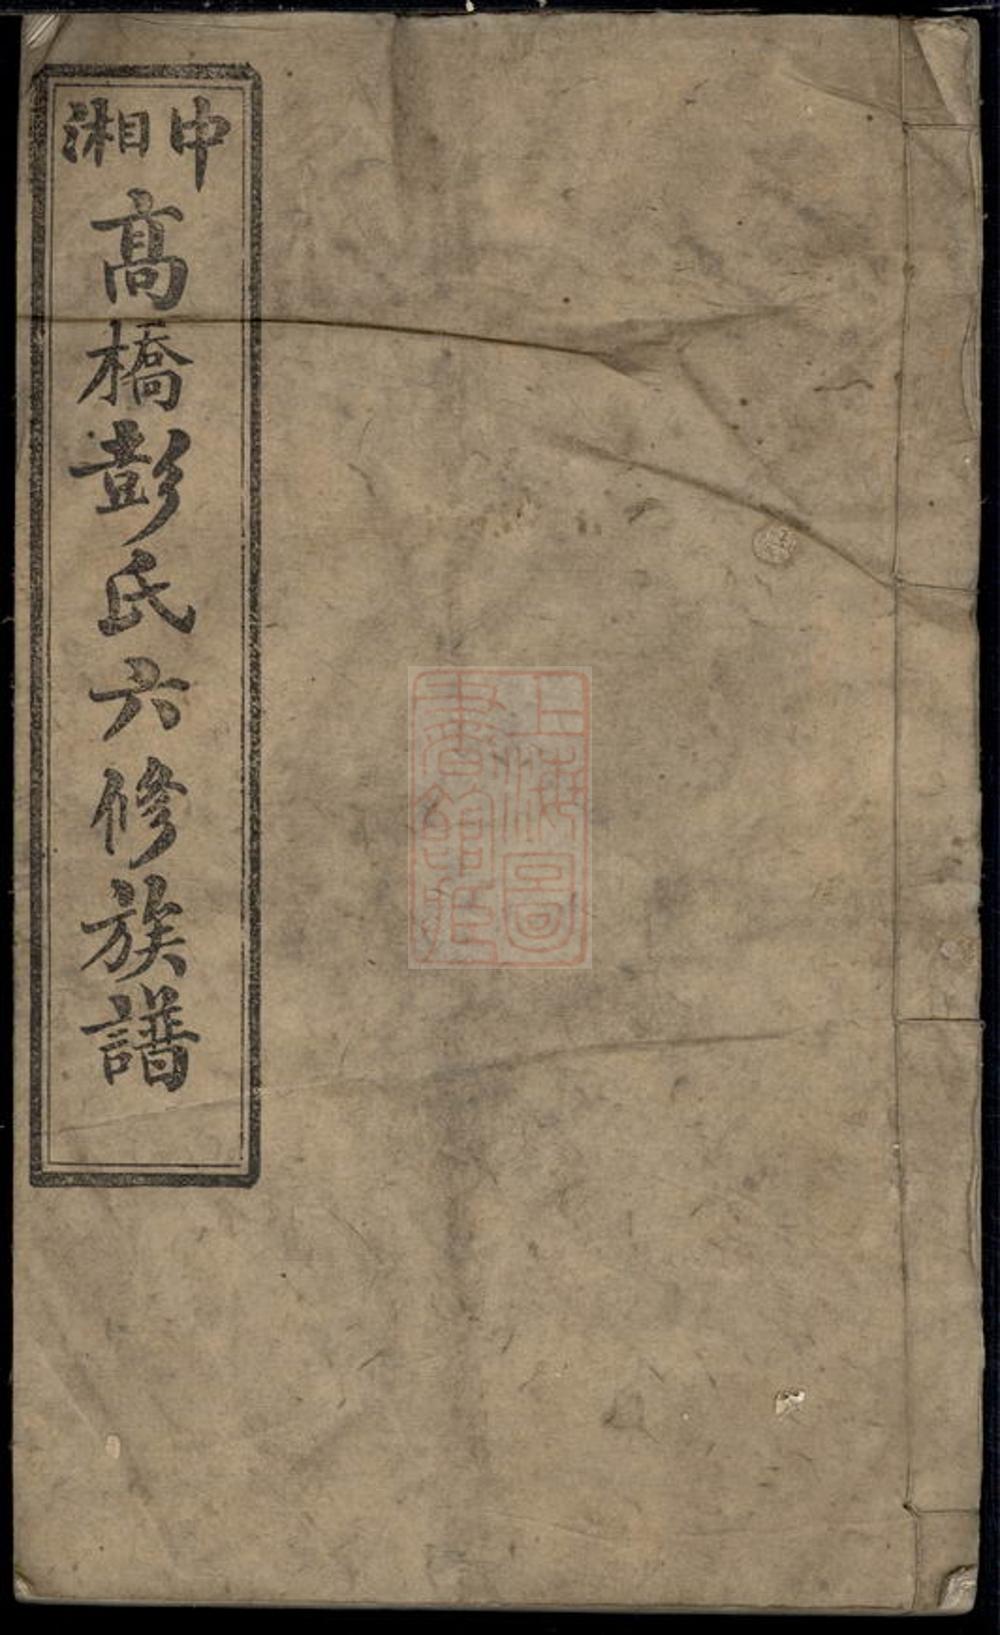 中湘
髙橋彭氏六修族譜
上海圖
書館藏